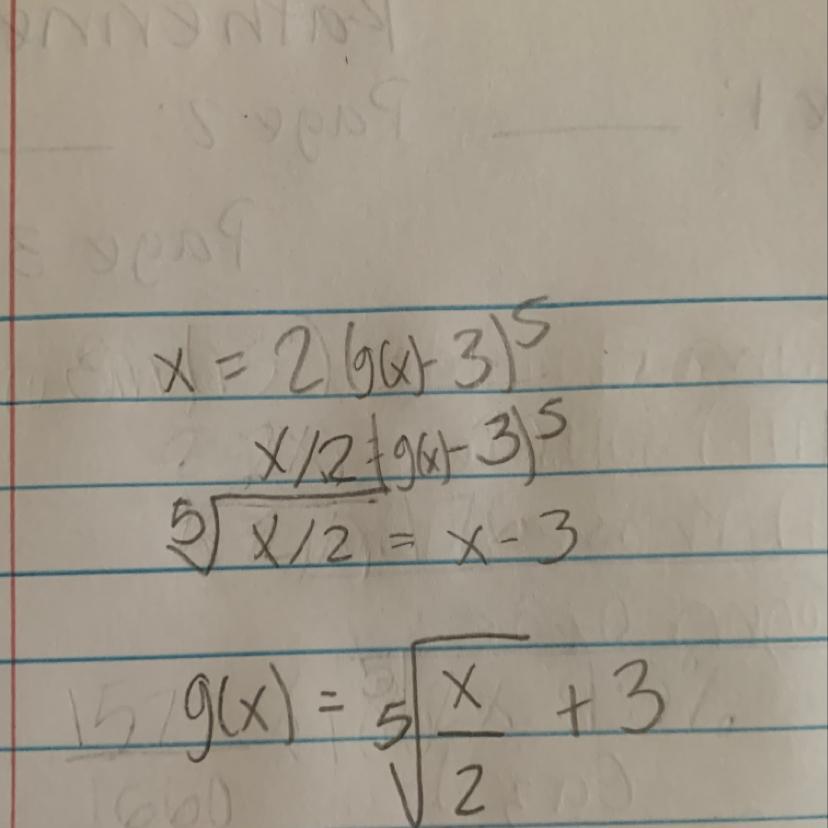 x = 2(g(x) - 3)^5
x/2 = (g(x) - 3)^5
⁵√(x/2) = x - 3
g(x) = ⁵√(x/2) + 3